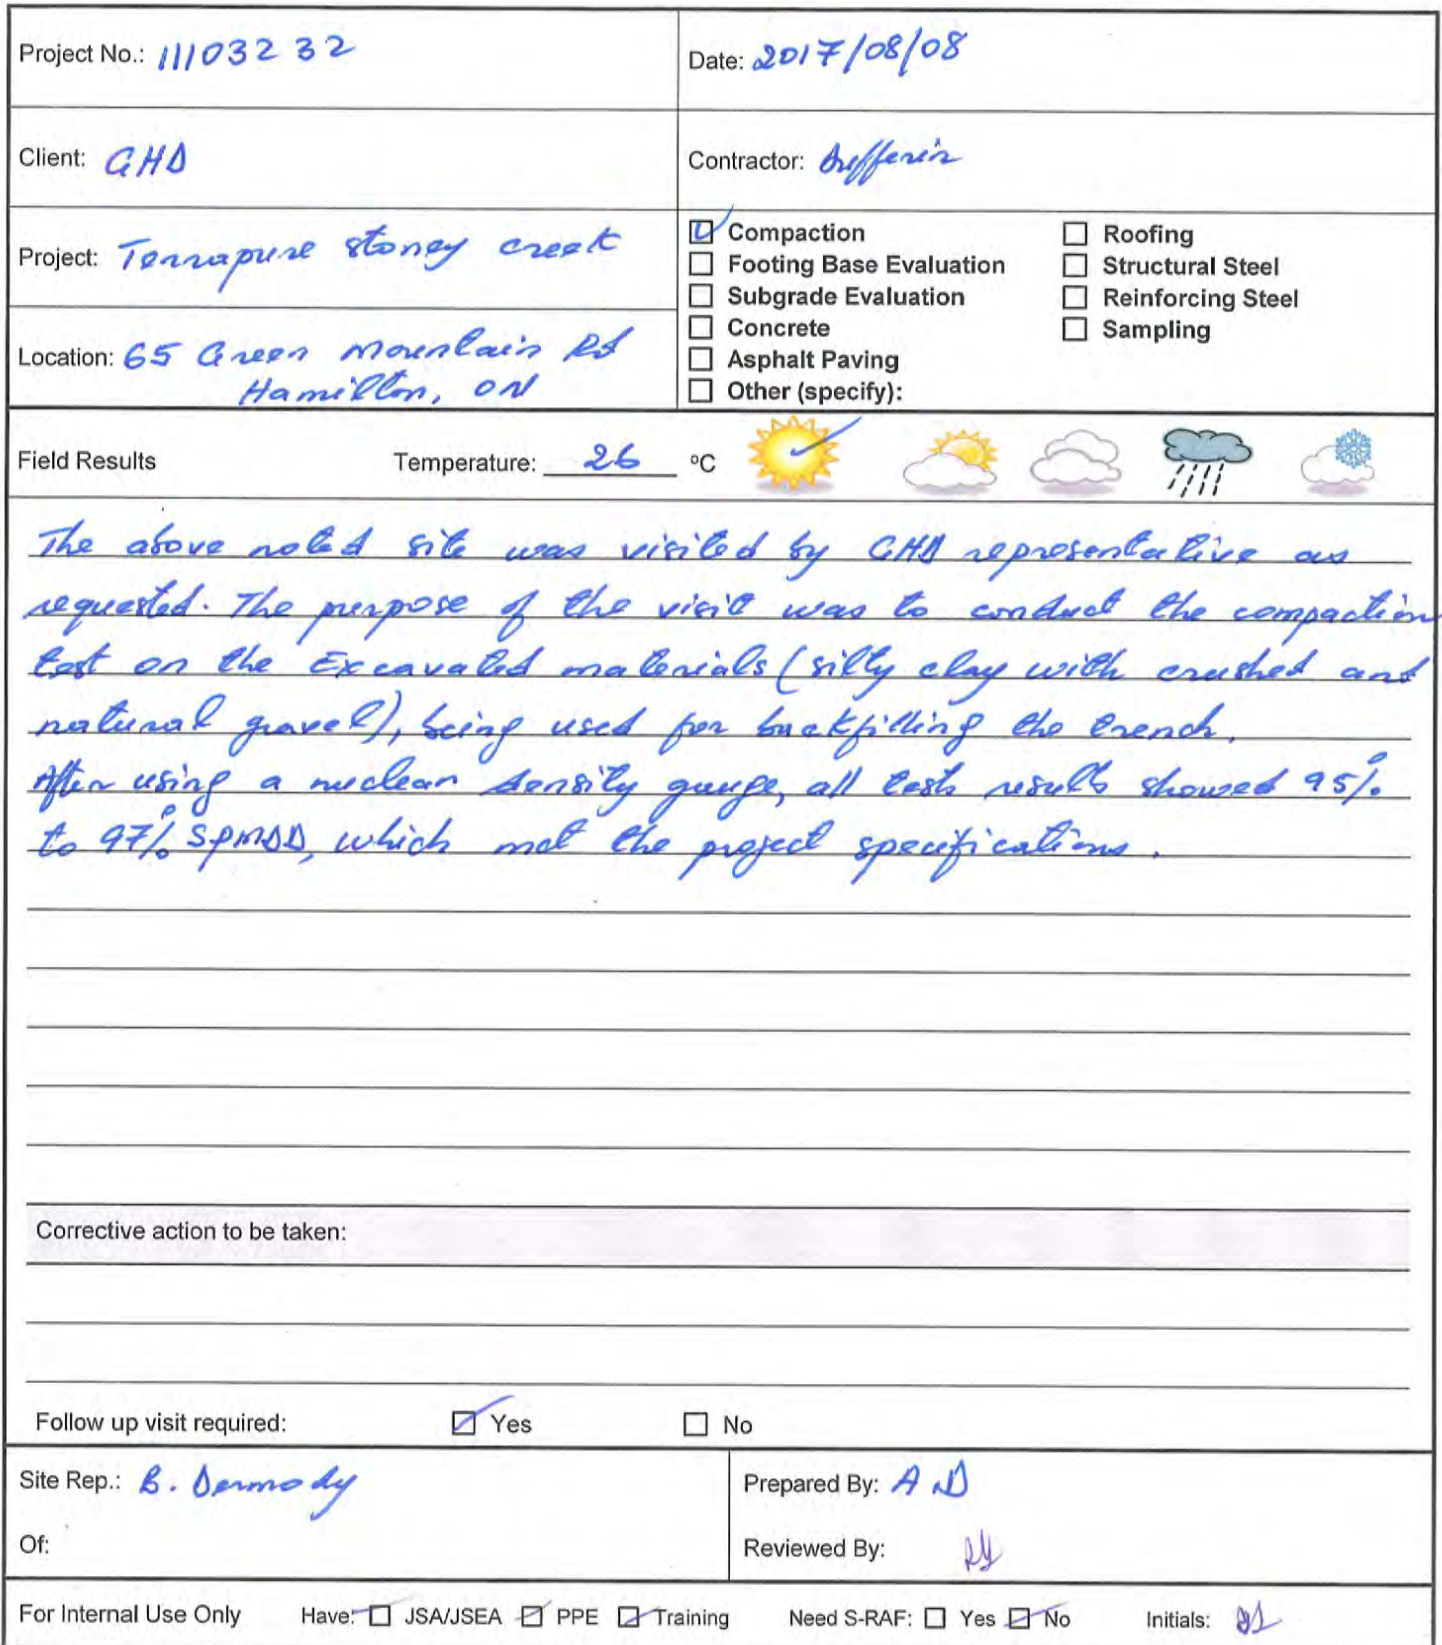 Project No.: 11103232
Date: 2017/08/08
Client: GHD
Contractor: Dufferin
Project: Terrapure stoney creek
Location: 65 Green Mountain Rd
Hamilton, ON
Compaction
Footing Base Evaluation
Subgrade Evaluation
Concrete
Asphalt Paving
Other (specify):
Roofing
Structural Steel
Reinforcing Steel
Sampling
Field Results Temperature: 26 °C
The above noted site was visited by GHD representative as
requested. The purpose of the visit was to conduct the compaction
test on the Excavated materials (silty clay with crushed and
natural gravel), being used for backfilling the trench.
After using a nuclear density gauge, all test results showed 95%
to 97% SPMDD, which met the project specifications.
Corrective action to be taken:
Follow up visit required: Yes No
Site Rep.: B. Dermody
Of:
Prepared By: AD
Reviewed By:
For Internal Use Only Have: JSA/JSEA PPE Training Need S-RAF: Yes No Initials: